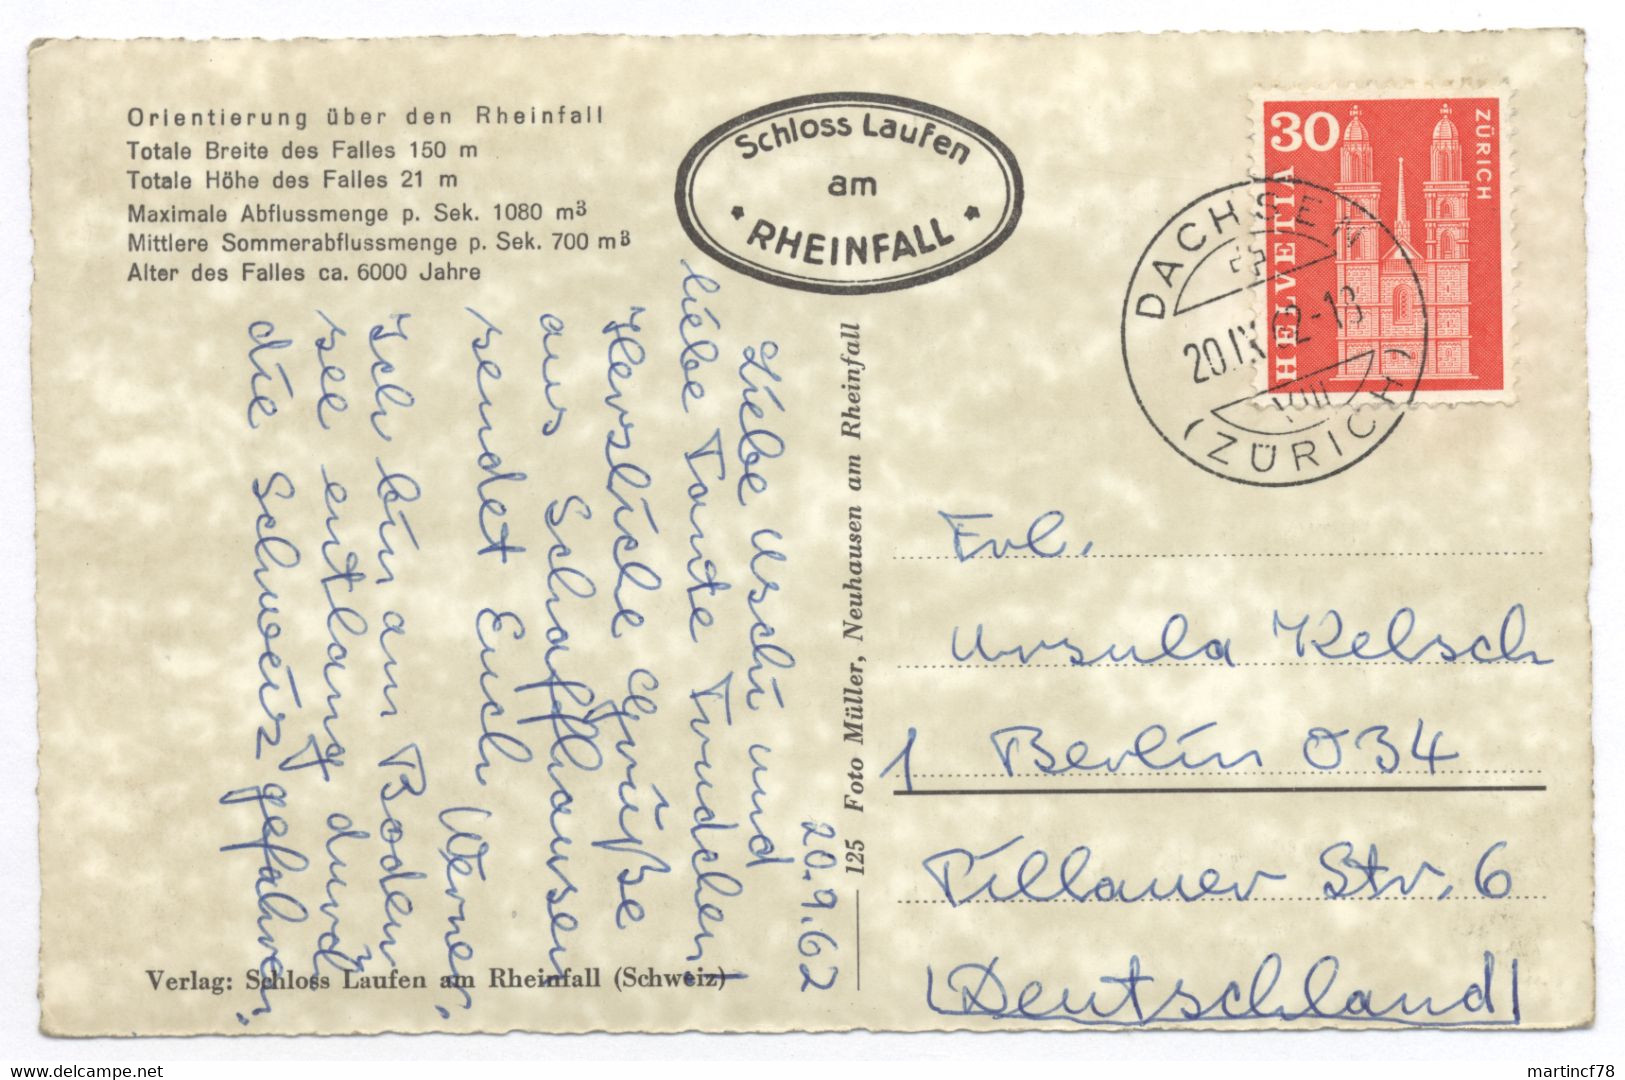 Orientierung über den Rheinfall
Totale Breite des Falles 150 m
Totale Höhe des Falles 21 m
Maximale Abflussmenge p. Sek. 1080 m³
Mittlere Sommerabflussmenge p. Sek. 700 m³
Alter des Falles ca. 6000 Jahre
Schloss Laufen
am
* RHEINFALL *
30
HELVETIA
ZÜRICH
DACHSEN
20.IX.62-18
(ZÜRICH)
20.9.62
Liebe Uschi und
liebe Tante Trudchen!
Herzliche Grüße
aus Schaffhausen
sendet Euch Werner.
Ich bin am Boden
see entlang durch
die Schweiz gefahren.
125 Foto Müller, Neuhausen am Rheinfall
Frl.
Ursula Kelsch
1 Berlin O34
Pillauer Str. 6
(Deutschland)
Verlag: Schloss Laufen am Rheinfall (Schweiz)
delcampe.net
martincf78